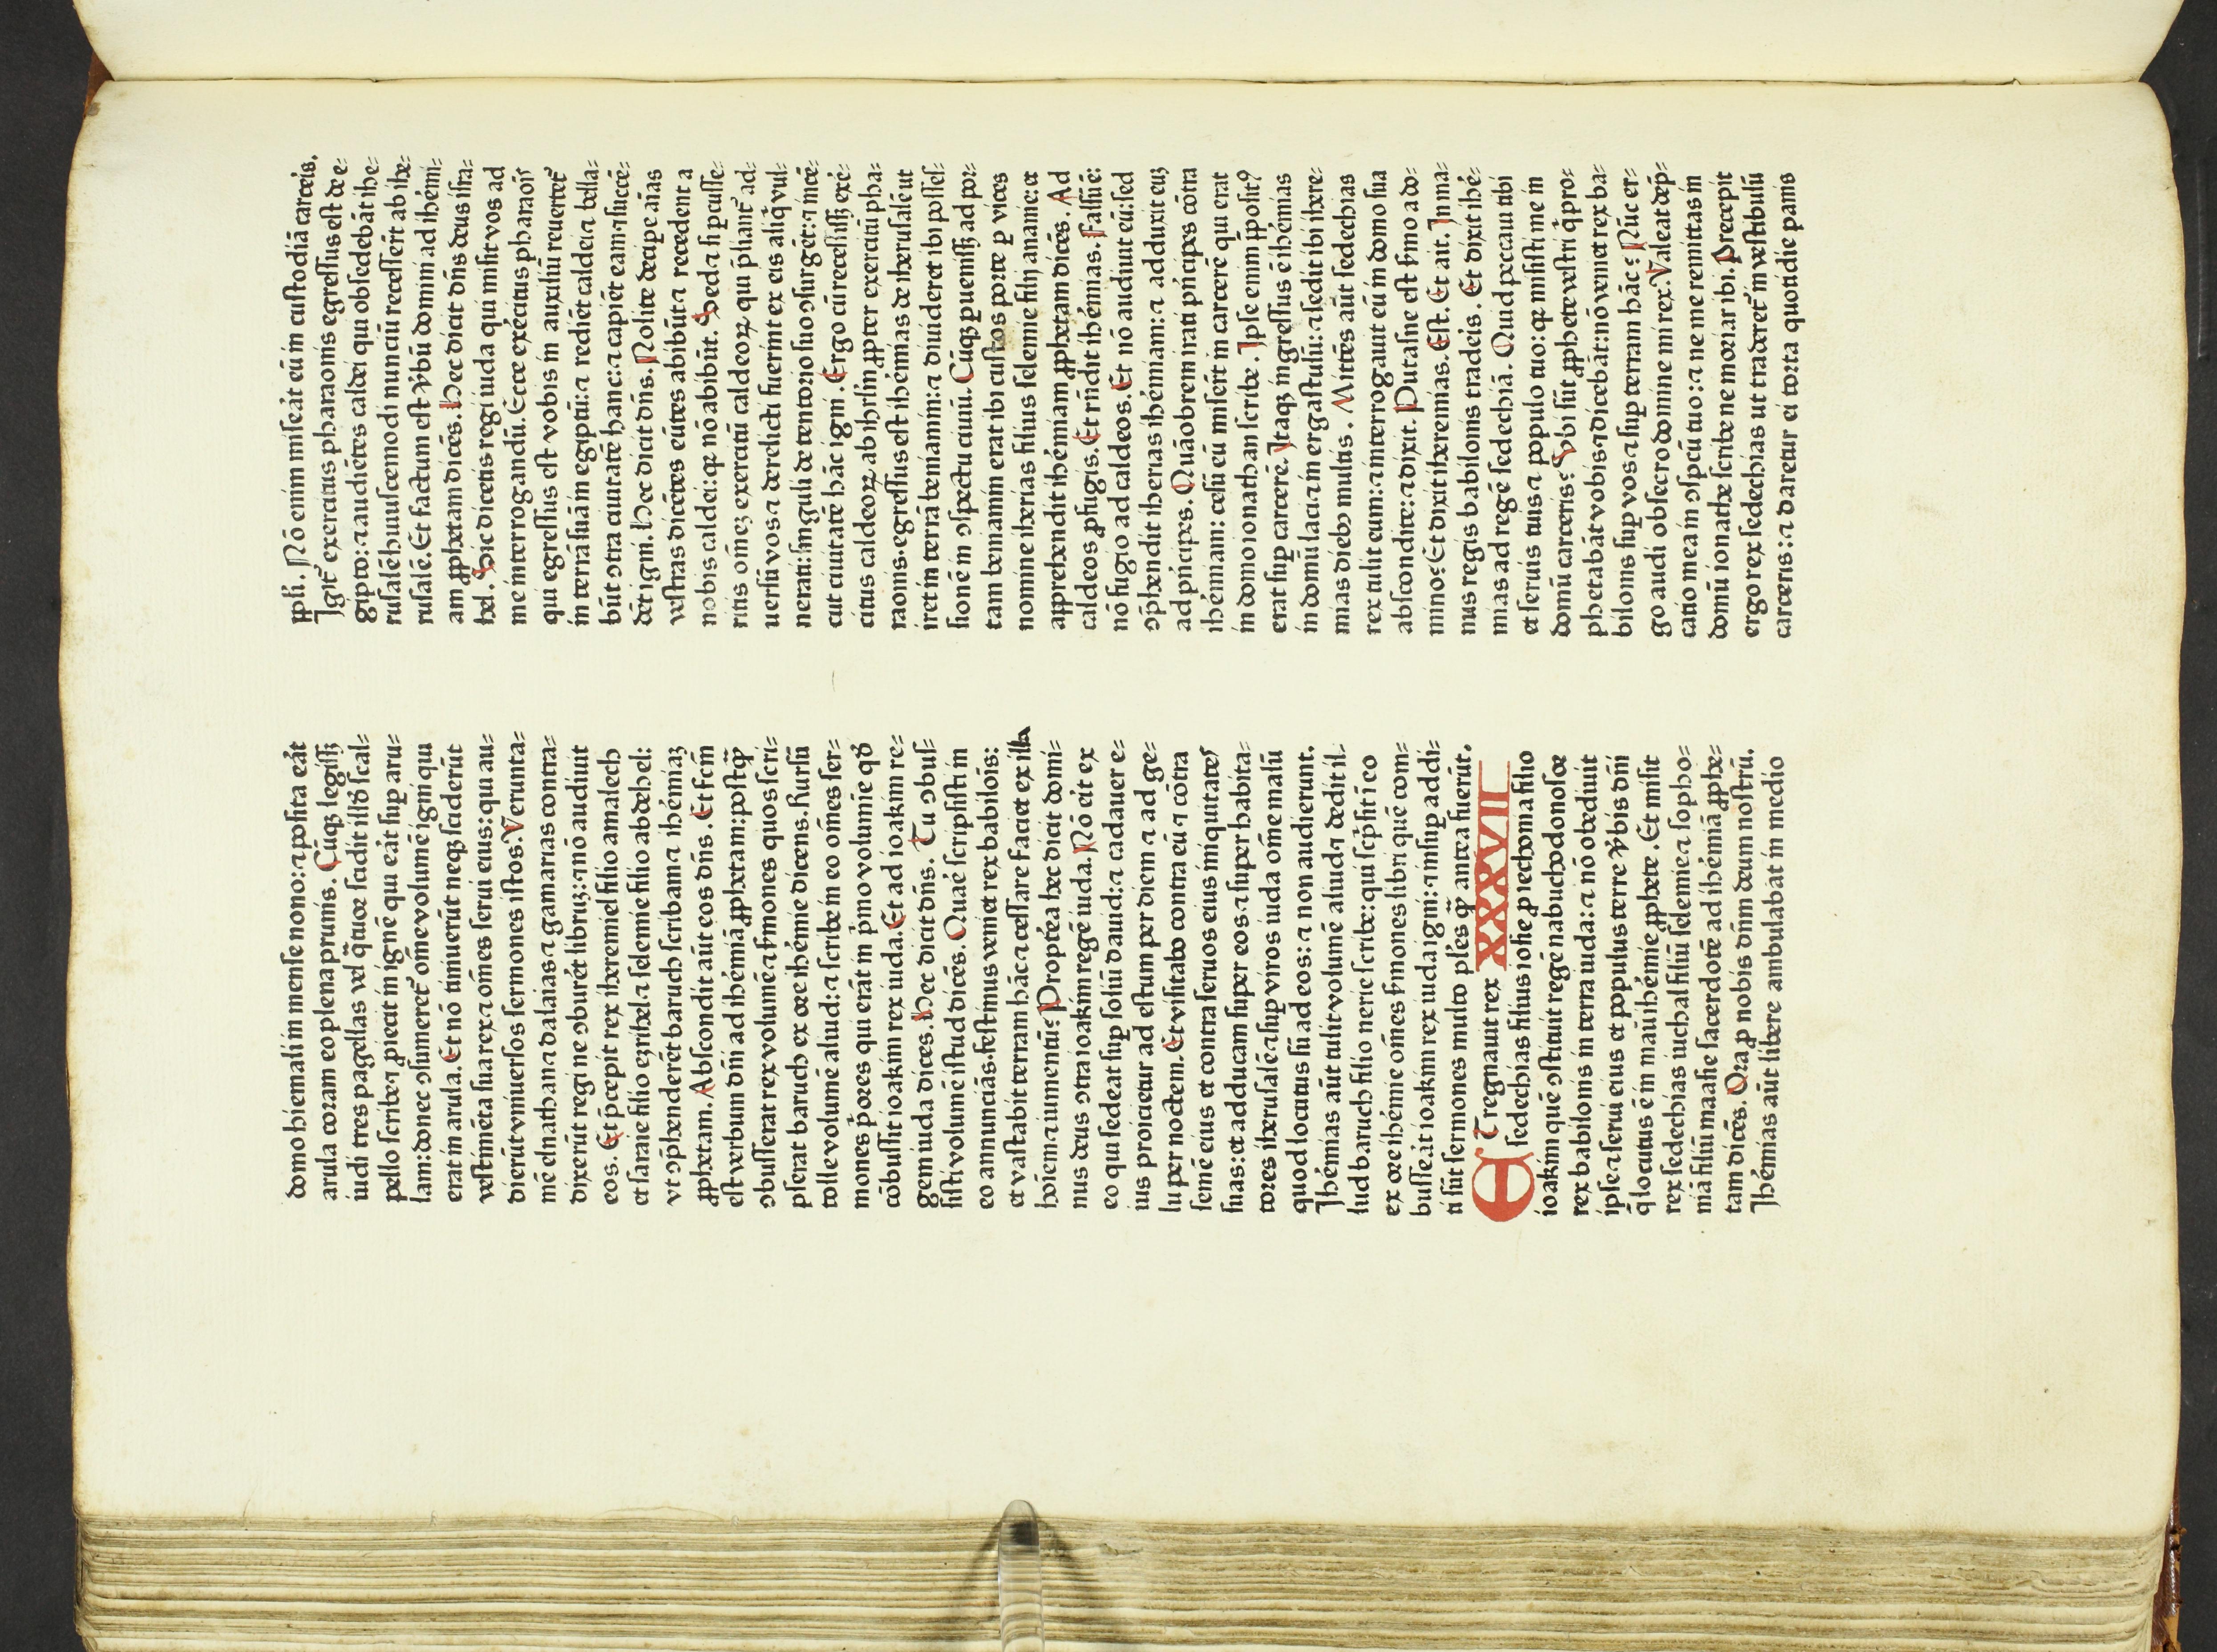 domo hiemali in mense nono: ⁊ posita eāt
arula coram eo plena prunis. Cūqꝫ legissꝫ
iudi tres pagellas vel q̄tuor scidit illd̄ scal⸗
pello scribe ⁊ ꝓiecit in ignē qui eāt suꝑ aru⸗
lam: donec ↄsumeret᷑ om̄e volumē igni qui
erat in arula. Et nō timuerūt neqꝫ sciderūt
vestimēta sua rex ⁊ om̄es serui eius: qui au⸗
dierūt vniuersos sermones istos. Verunta⸗
mē elnathan ⁊ dalaias ⁊ gamarias contra⸗
dixerūt regi ne ↄburēt libruꝫ: ⁊ nō audiuit
eos. Et p̄cepit rex iheremiel filio amalech
et saraie filio ezrihel ⁊ selemie filio abdehel:
vt ↄp̄henderēt baruch scribam ⁊ ihēmiaꝫ
ꝓphetam. Abscondit aūt eos dn̄s. Et fcm̄
est verbum dn̄i ad ihēmiā ꝓphetam: postq̄ꝫ
ↄbusserat rex volumē ⁊ ẜmones quos scri⸗
pserat baruch ex ore ihēmie dicens. Rursū
tolle volumē aliud: ⁊ scribe in eo om̄es ser⸗
mones p̄ores qui erāt in p̄mo volumīe qd̄
cōbussit ioakim rex iuda. Et ad ioakim re⸗
gem iuda dices. Hec dicit dn̄s. Tu ↄbus⸗
sisti volumē istud dicēs. Quaē scripsisti in
eo annunciās. festinus veniet rex babilōis:
et vastabit terram hāc ⁊ cessare faciet ex illa
hoiem ⁊ iumentū: Propteā hec dicit domi⸗
nus deus ↄtra ioakim regē iuda. Nō eit ex
eo qui sedeat suꝑ soliū dauid: ⁊ cadauer e⸗
ius proicietur ad estum per diem ⁊ ad ge⸗
lu per noctem. Et visitabo contra eū ⁊ cōtra
semē eius et contra seruos eius iniquitates
suas: et adducam super eos ⁊ super habita⸗
tores iherusalē ⁊ suꝑ viros iuda om̄e malū
quod locutus sū ad eos: ⁊ non audierunt.
Ihēmias aūt tulit volumē aliud ⁊ dedit il⸗
lud baruch filio nerie scribe: qui scp̄sit ī eo
ex ore ihēmie om̄es ẜmones libri quē com⸗
busseāt ioakim rex iuda igni: ⁊ insuꝑ addi⸗
ti sūt sermones multo pl̄es q̄ꝫ antea fuerūt.
ET regnauit rex XXXVII
sedechias filius iosie ꝓ iechonia filio
ioakim quē ↄstituit regē nabuchodonosor
rex babilonis in terra iuda: ⁊ nō obediuit
ipse ⁊ serui eius et populus terre v̄bis dn̄i
q̄ locutus ē in manu ihēmie ꝓphete. Et misit
rex sedechias iuchal filiū selemie ⁊ sopho⸗
niā filiū maasie sacerdotē ad ihēmiā ꝓphe⸗
tam dicēs. Ora ꝓ nobis dn̄m deum nostrū.
Ihēmias aūt libere ambulabat in medio
ppl̄i. Nō enim miseāt eū in custodiā carceis.
Igit᷑ exercitus pharaonis egressus est de e⸗
gipto: ⁊ audiētes caldei qui obsedebāt ihe⸗
rusalē huiuscemodi nunciū recesserūt ab ihe⸗
rusalē. Et factum est v̄bū domini ad ihēmi⸗
am ꝓphetam dicēs. Hec dicit dn̄s deus isra⸗
hel. Sic dicetis regi iuda qui misit vos ad
me interrogandū. Ecce exēcitus pharaōis
qui egressus est vobis in auxiliū reuertet᷑
in terrā suā in egiptū: ⁊ rediēt caldei ⁊ bella⸗
būt ↄtra ciuitatē hanc: ⁊ capiēt eam ⁊ succē⸗
dēt igni. Hec dicit dn̄s. Nolite decipe aīas
vestras dicētes eūtes abibūt ⁊ recedent a
nobis caldei: qꝛ nō abibūt. Sed ⁊ si ꝑcusse⸗
ritis om̄eꝫ exercitū caldeoꝝ qui p̄liant᷑ ad⸗
uersū vos ⁊ derelicti fuerint ex eis aliq̄ vul⸗
nerati: singuli de tentorio suo ↄsurgēt: ⁊ incē⸗
dēt ciuitatē hāc igni. Ergo cū recessissꝫ exē⸗
citus caldeoꝝ ab ihrl̄m ꝓpter exercitū pha⸗
raonis. egressus est ihēmias de iherusalē ut
iret in terrā beniamin: ⁊ diuideret ibi posses⸗
sionē in ↄspectu ciuiū. Cūqꝫ ꝑuenissꝫ ad por⸗
tam beniamin erat ibi custos porte ꝑ vices
nomine iherias filius selemie filij ananie: et
apprehendit ihēmiam ꝓphetam dicēs. Ad
caldeos ꝓfugis. Et rn̄dit ihēmias. Falsū ē:
nō fugio ad caldeos. Et nō audiuit eū: sed
ↄp̄hendit iherias ihēmiam: ⁊ adduxit euꝫ
ad p̄ncipes. Quāobrem irati p̄ncipes cōtra
ihēmiam: cesū eū miserūt in carcerē qui erat
in domo ionathan scribe. Ipse enim p̄posit⁹
erat suꝑ carcerē. Itaqꝫ ingressus ē ihēmias
in domū laci ⁊ in ergastulū: ⁊ sedit ibi ihere⸗
mias diebꝫ multis. Mittēs aūt sedechias
rex tulit eum: ⁊ interrogauit eū in domo sua
abscondite: ⁊ dixit. Putasne est ẜmo a do⸗
mino: Et dixit iheremias. Est. Et ait. In ma⸗
nus regis babilonis tradeis. Et dixit ihē⸗
mias ad regē sedechiā. Quid peccaui tibi
et seruis tuis ⁊ populo tuo: qꝛ misisti me in
domū carceris: Vbi sūt ꝓphete vestri q̄ pro⸗
phetabāt vobis ⁊ dicebāt: nō veniet rex ba⸗
bilonis suꝑ vos ⁊ suꝑ terram hāc: Nūc er⸗
go audi obsecro domine mi rex. Valeat dep̄⸗
catio mea in ↄspcū tuo: ⁊ ne me remittas in
domū ionathe scribe ne moriar ibi. Precepit
ergo rex sedechias ut traderet᷑ in vestibulū
carceris: ⁊ daretur ei torta quotidie panis